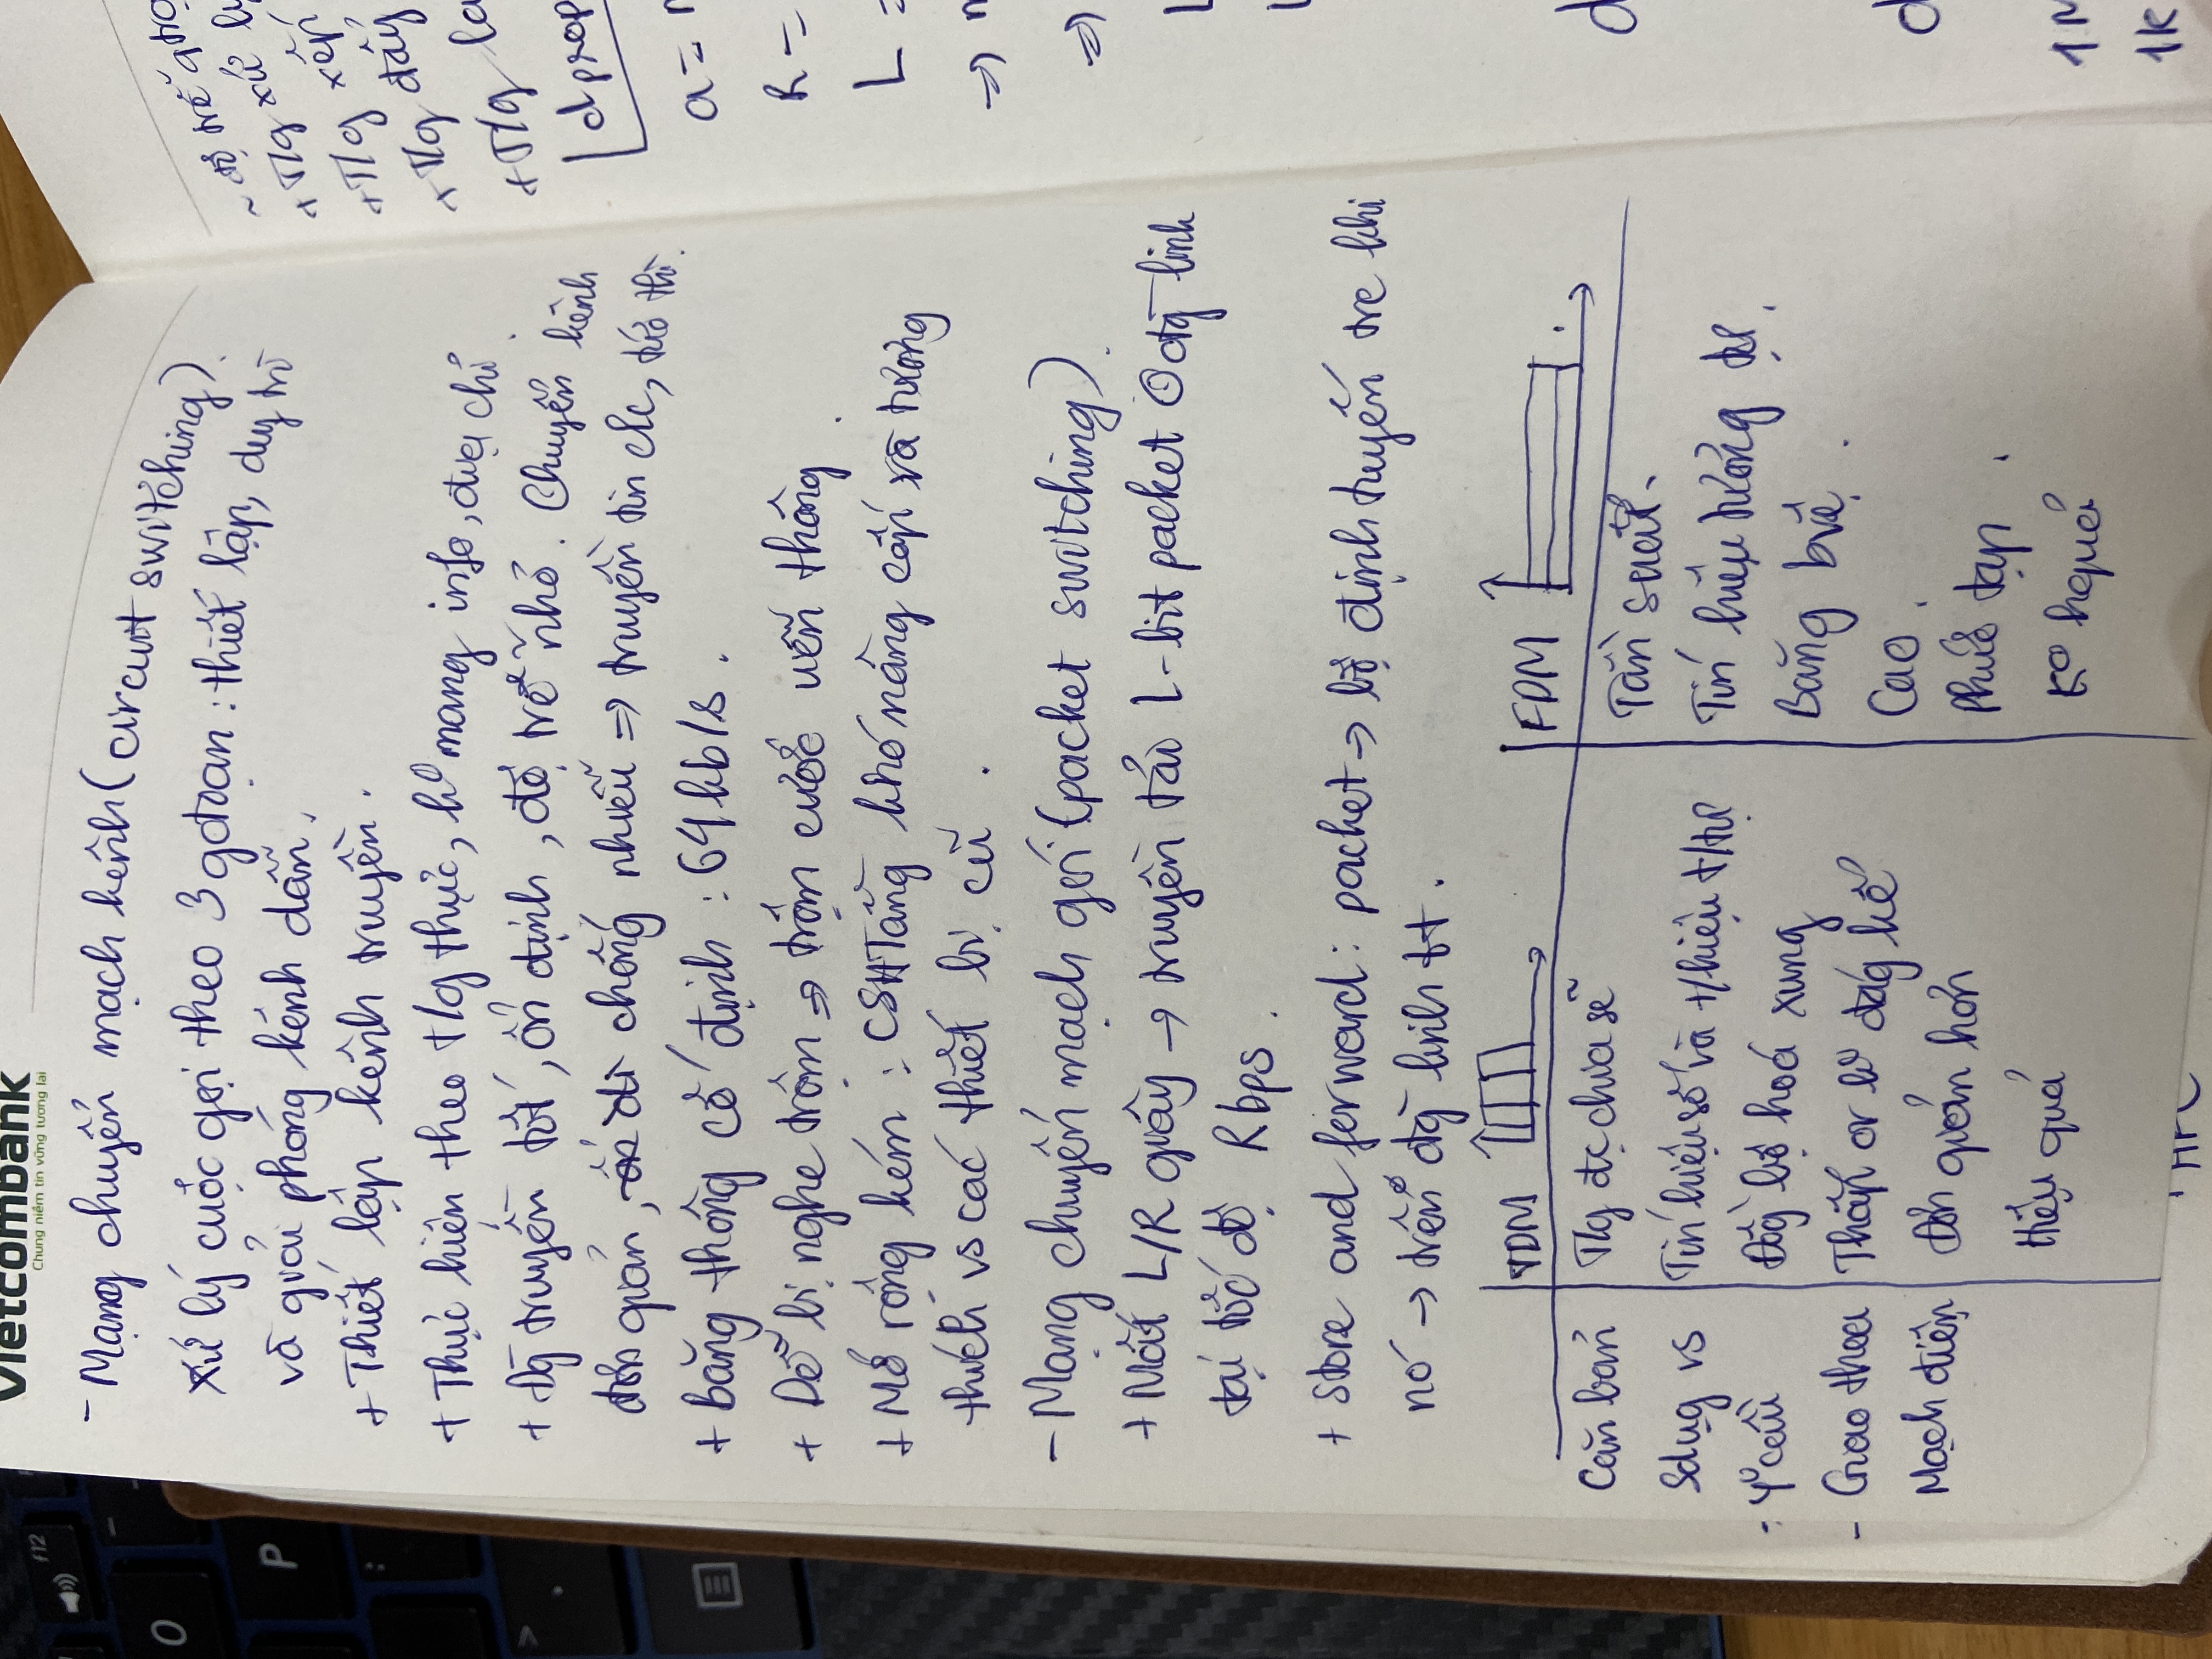 Vietcombank
Chung niềm tin vững tương lai
- Mạng chuyển mạch kênh (circuit switching).
xử lý cuộc gọi theo 3 gđoạn : thiết lập, duy trì
và giải phóng kênh dẫn.
+ Thiết lập kênh truyền.
+ Thực hiện theo t/g thực, ko mang info, địa chỉ.
+ Đg truyền tốt, ổn định, độ trễ nhỏ. Chuyển kênh
đơn giản, di chống nhiễu => truyền tin clc, tức thì.
+ Băng thông cố định : 64kb/s.
+ Dễ bị nghe trộm => trộm cước viễn thông.
+ Mở rộng kém : CSHTầng khó nâng cấp và tương
thích vs các thiết bị cũ.
- Mạng chuyển mạch gói (packet switching).
+ Mất L/R giây -> truyền tải L-bit packet đg link
tại tốc độ R bps.
+ Store and forward: packet -> bộ định tuyến trc khi
nó -> trên đg link tt.
TDM
FDM
Căn bản T/g đc chia sẽ Tần suất.
Sdụg vs Tín hiệu số và t/hiệu t/tự Tín hiệu tương tự.
- Yo cầu Đồg bộ hoá xung Băng bvệ.
- Giao thoa Thấp or ko đág kể Cao.
Mạch điện Đơn giản hơn Phức tạp.
Hiệu quả Ko hquả
~ độ trễ
+ T/g xử lý
+ T/g xếp
+ T/g đẩy
+ T/g la
d prop
a =
R =
L =
=>
=>
d
d
1M
1k
f12
O
P